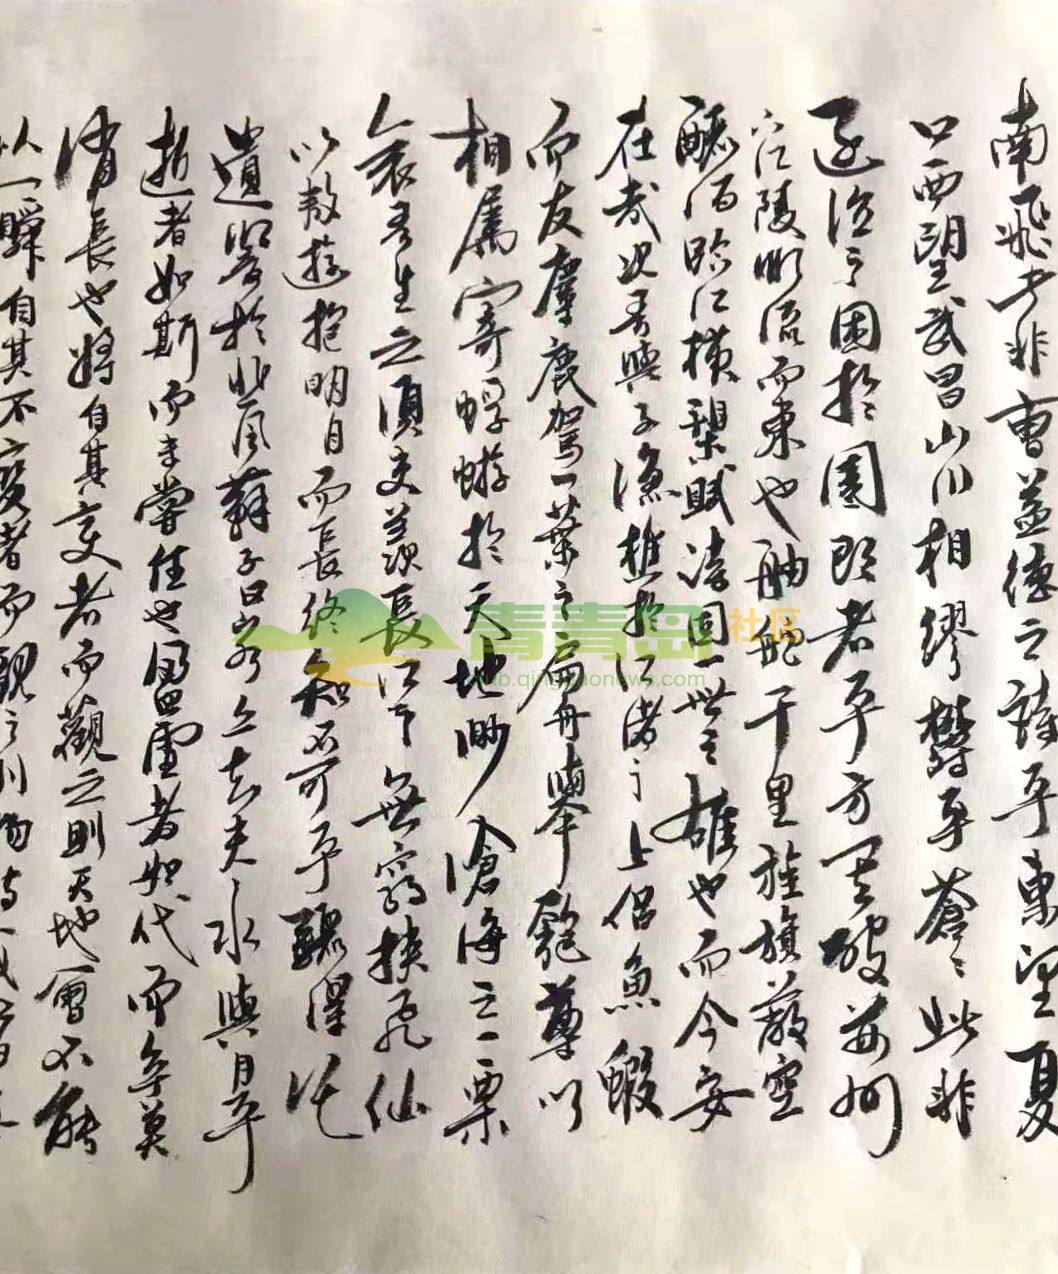 南飛此非曹孟德之詩乎東望夏
口西望武昌山川相繆鬱乎蒼〻此非
孟德之困於周郎者乎方其破荊州
下江陵順流而東也舳艫千里旌旗蔽空
釃酒臨江橫槊賦詩固一世之雄也而今安
在哉況吾與子漁樵於江渚之上侶魚蝦
而友麋鹿駕一葉之扁舟舉匏尊以
相屬寄蜉蝣於天地渺滄海之一粟
哀吾生之須臾羨長江之無窮挾飛仙
以遨遊抱明月而長終知不可乎驟得托
遺響於悲風蘇子曰客亦知夫水與月乎
逝者如斯而未嘗往也盈虛者如彼而卒莫
消長也將自其變者而觀之則天地曾不能
以一瞬自其不變者而觀之則物與我皆
青青岛社区
club.qingdaonews.com